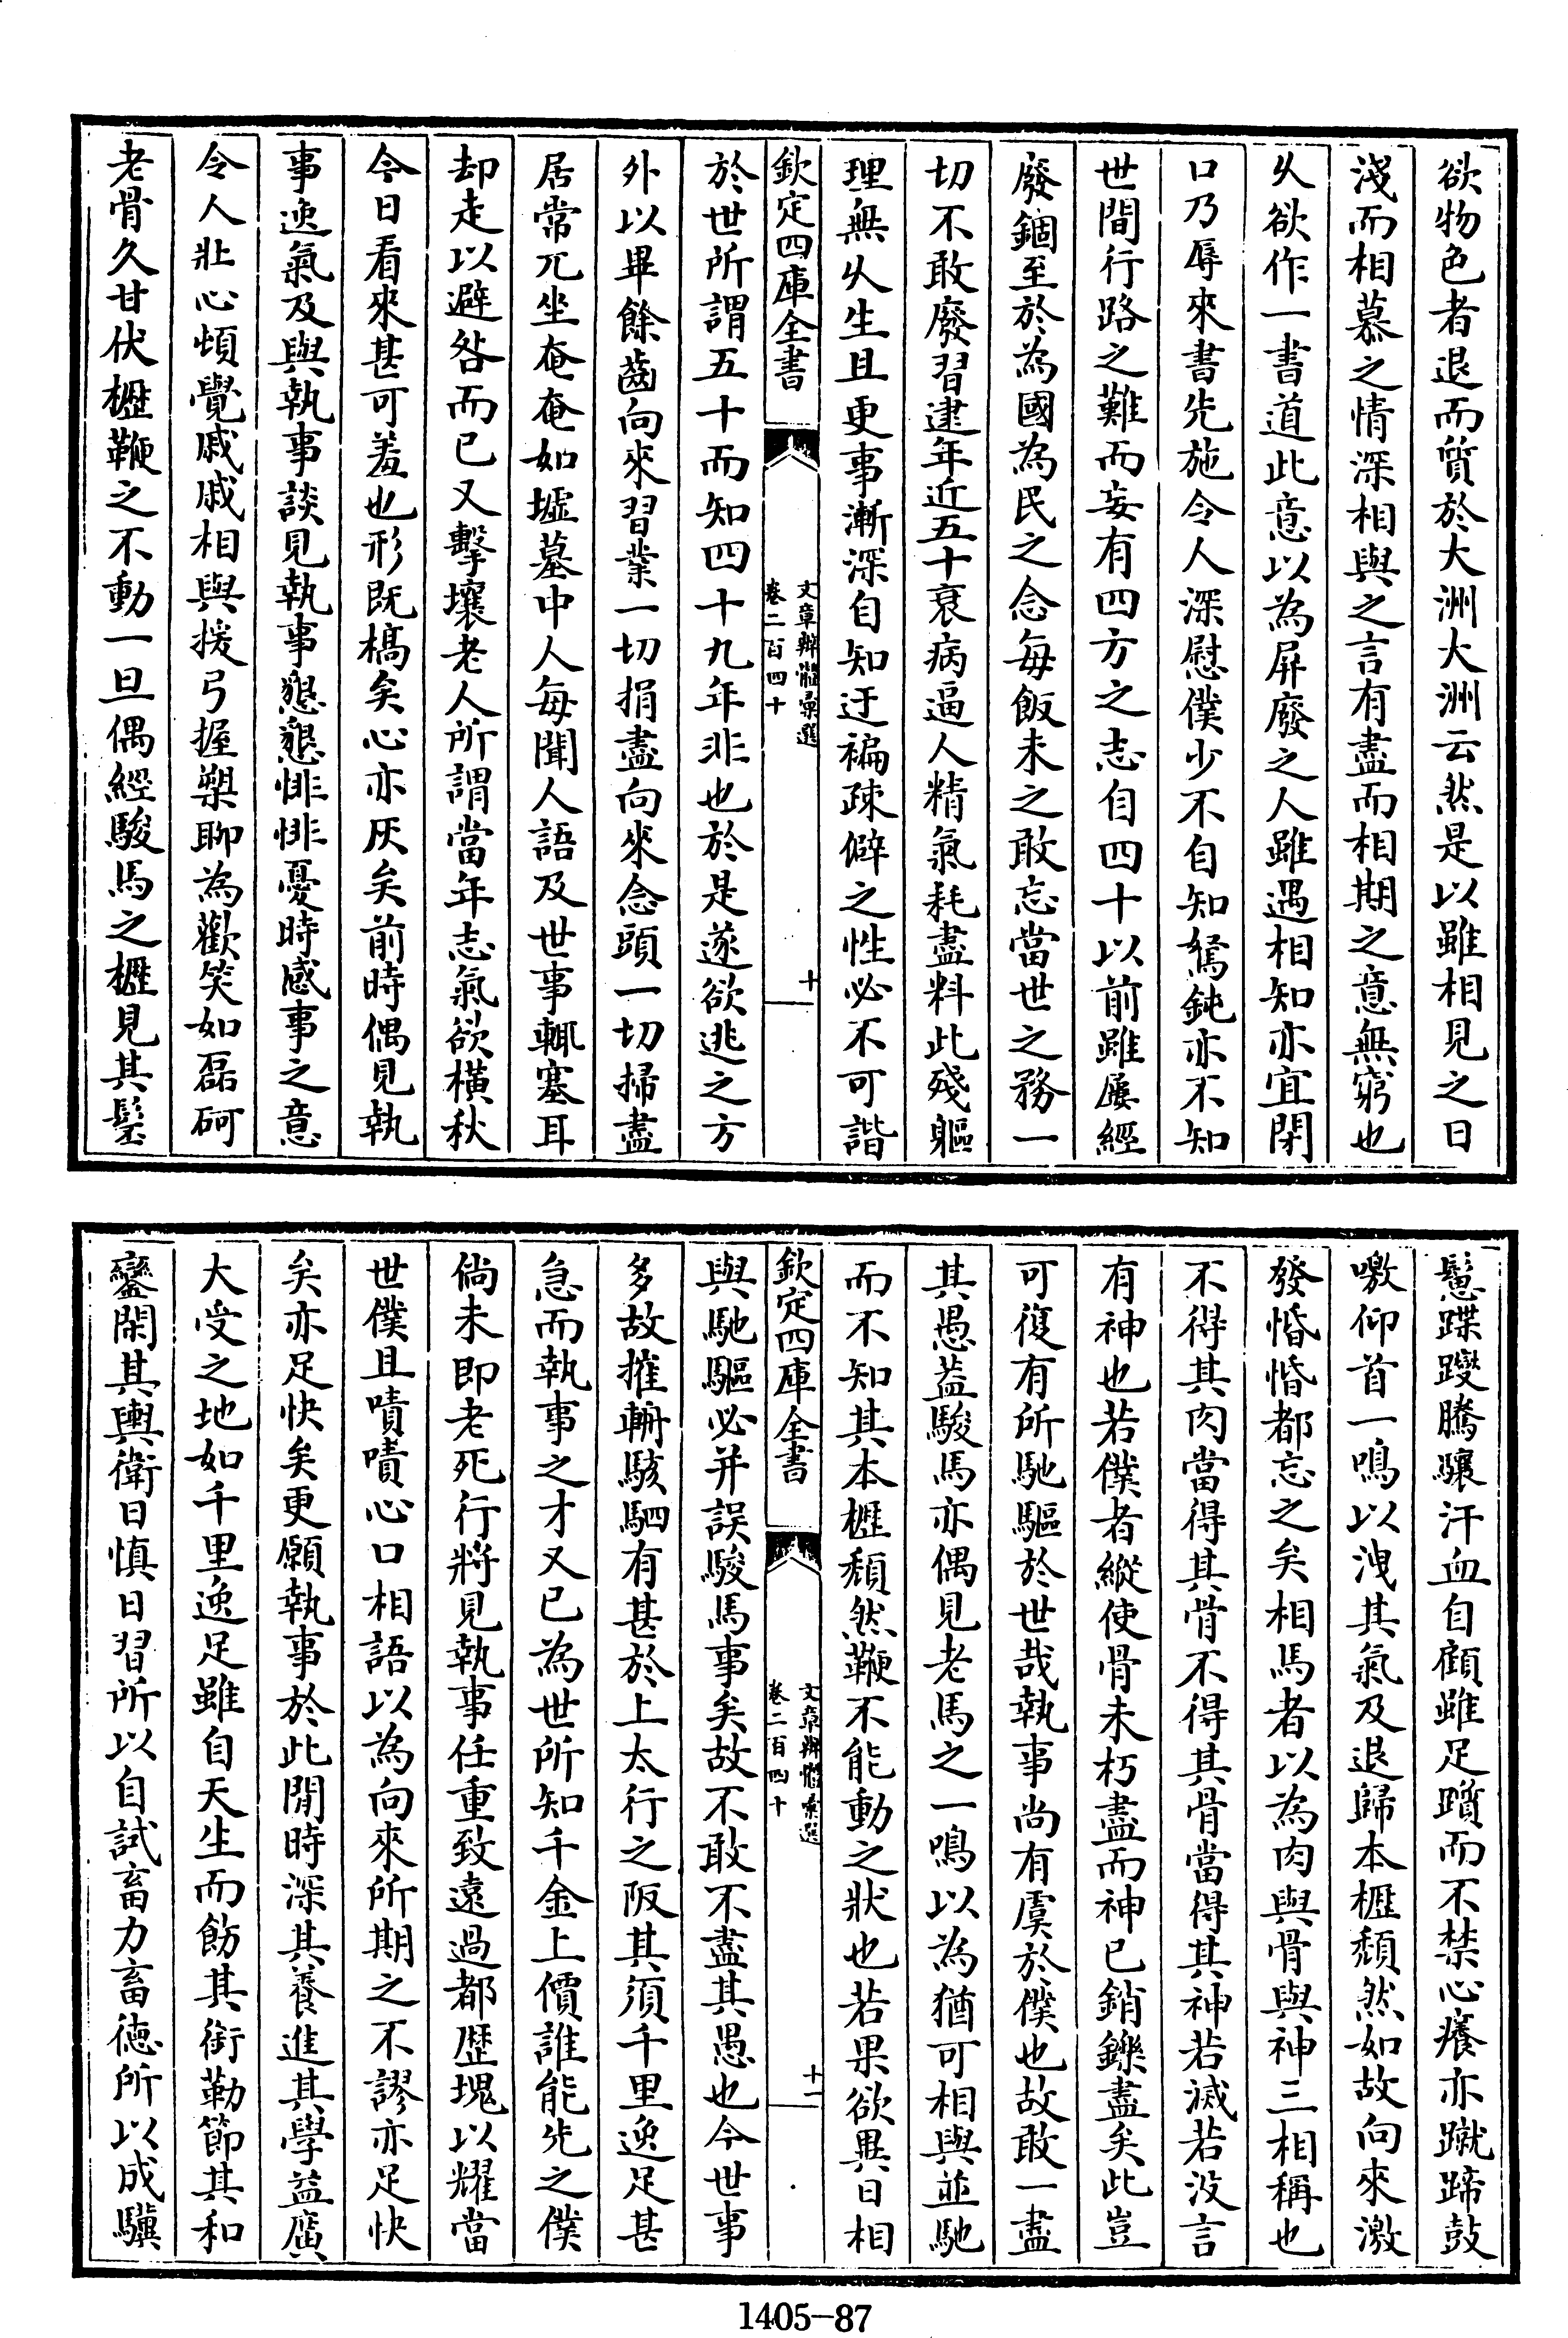 欲物色者退而質於大洲大洲云然是以雖相見之日
淺而相慕之情深相與之言有盡而相期之意無窮也
乆欲作一書道此意以為屏廢之人雖遇相知亦宜閉
口乃辱來書先施令人深慰僕少不自知駑鈍亦不知
世間行路之難而妄有四方之志自四十以前雖屢經
廢錮至於為國為民之念每飯未之敢忘當世之務一
切不敢廢習逮年近五十衰病逼人精氣耗盡料此殘軀
理無乆生且更事漸深自知迂褊疎僻之性必不可諧
欽定四庫全書
文章辨體彙選
卷二百四十
十
於世所謂五十而知四十九年非也於是遂欲逃之方
外以畢餘齒向來習業一切捐盡向來念頭一切掃盡
居常兀坐奄奄如墟墓中人每聞人語及世事輒塞耳
却走以避咎而已又擊壤老人所謂當年志氣欲橫秋
今日看來甚可羞也形既槁矣心亦灰矣前時偶見執
事逸氣及與執事談見執事懇懇悱悱憂時感事之意
令人壯心頓覺戚戚相與援弓握槊聊為歡笑如磊砢
老骨久甘伏櫪鞭之不動一旦偶經駿馬之櫪見其鬉
鬛蹀躞騰驤汗血自顧雖足躓而不禁心癢亦蹴蹄鼓
噭仰首一鳴以洩其氣及退歸本櫪頽然如故向來激
發惛惛都忘之矣相馬者以為肉與骨與神三相稱也
不得其肉當得其骨不得其骨當得其神若滅若沒言
有神也若僕者縱使骨未朽盡而神已銷鑠盡矣此豈
可復有所馳驅於世哉執事尚有虞於僕也故敢一盡
其愚葢駿馬亦偶見老馬之一鳴以為猶可相與並馳
而不知其本櫪頽然鞭不能動之狀也若果欲異日相
欽定四庫全書
文章辨體彙選
卷二百四十
十一
與馳驅必并誤駿馬事矣故不敢不盡其愚也今世事
多故摧輈駭駟有甚於上太行之阪其須千里逸足甚
急而執事之才又已為世所知千金上價誰能先之僕
倘未即老死行將見執事任重致遠過都歷塊以耀當
世僕且嘖嘖心口相語以為向來所期之不謬亦足快
矣亦足快矣更願執事於此閒時深其養進其學益廣
大受之地如千里逸足雖自天生而飭其銜勒節其和
鑾閑其輿衛日慎日習所以自試畜力畜徳所以成驥
1405-87